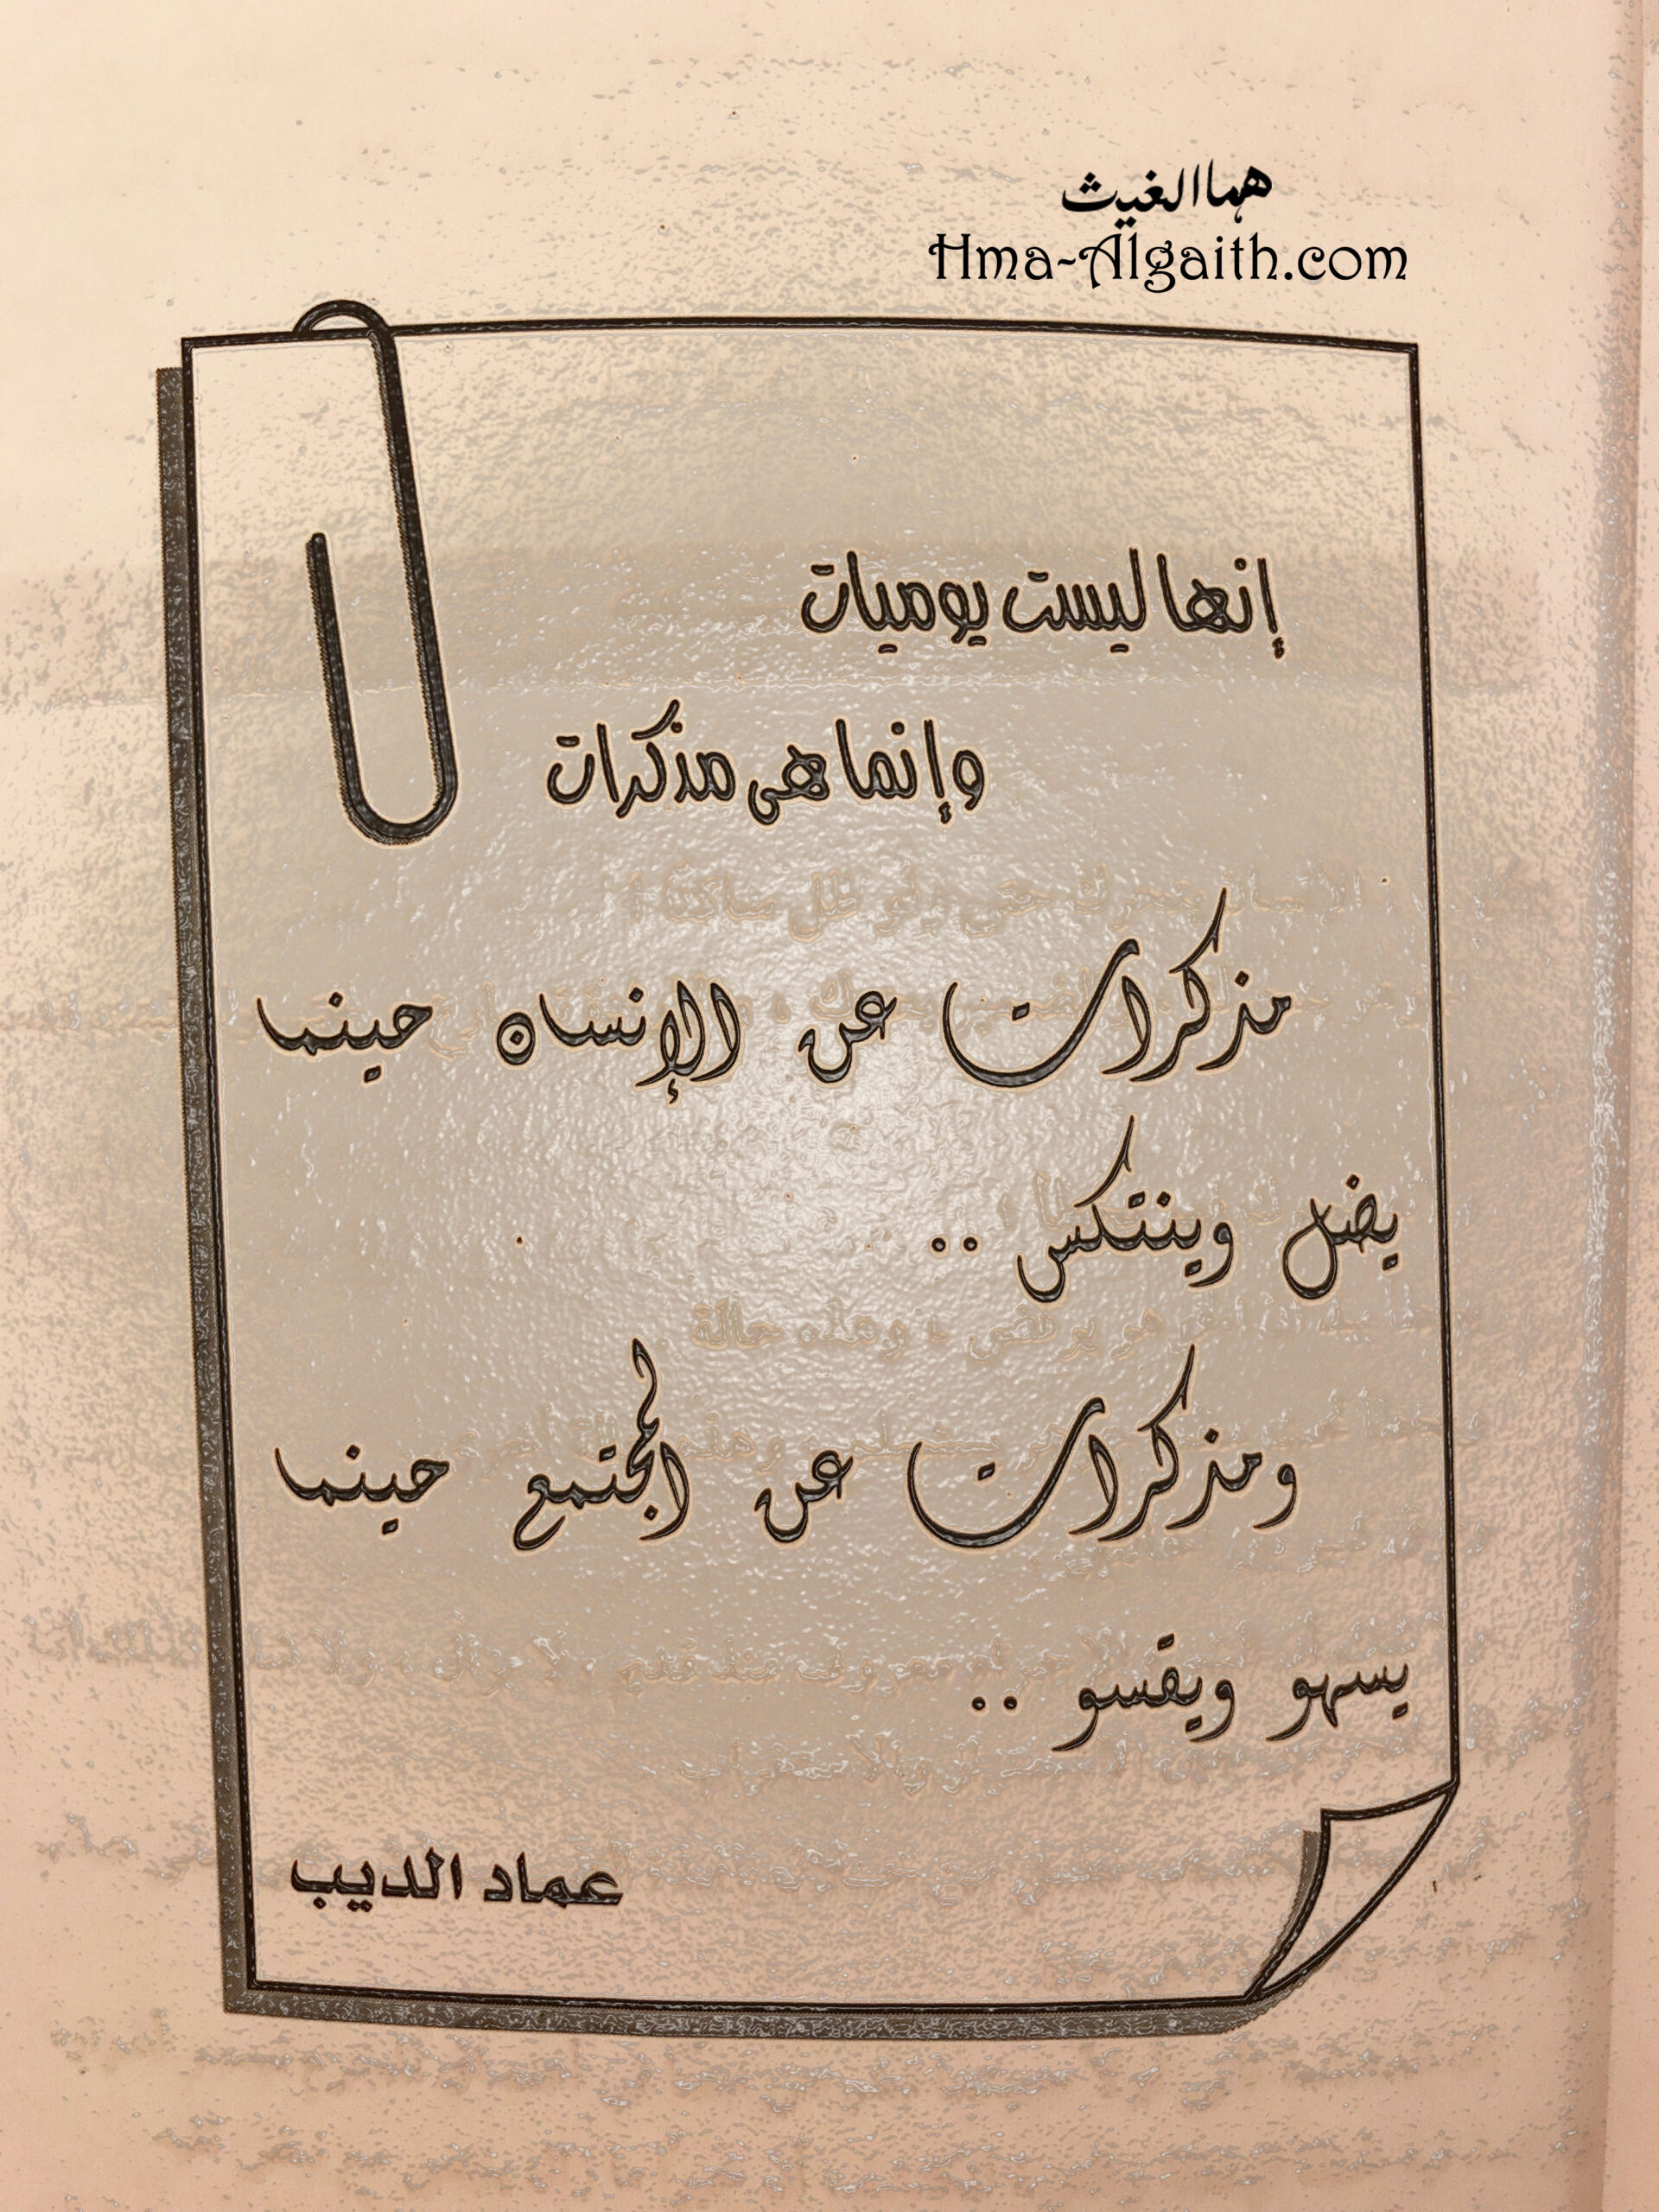 هما الغيث
Hma-Algaith.com
إنها ليست يوميات
وإنما هى مذكرات
مذكرات عن الإنسان حينما
يضل وينتكس ..
ومذكرات عن المجتمع حينما
يسهو ويقسو ..
عماد الديب